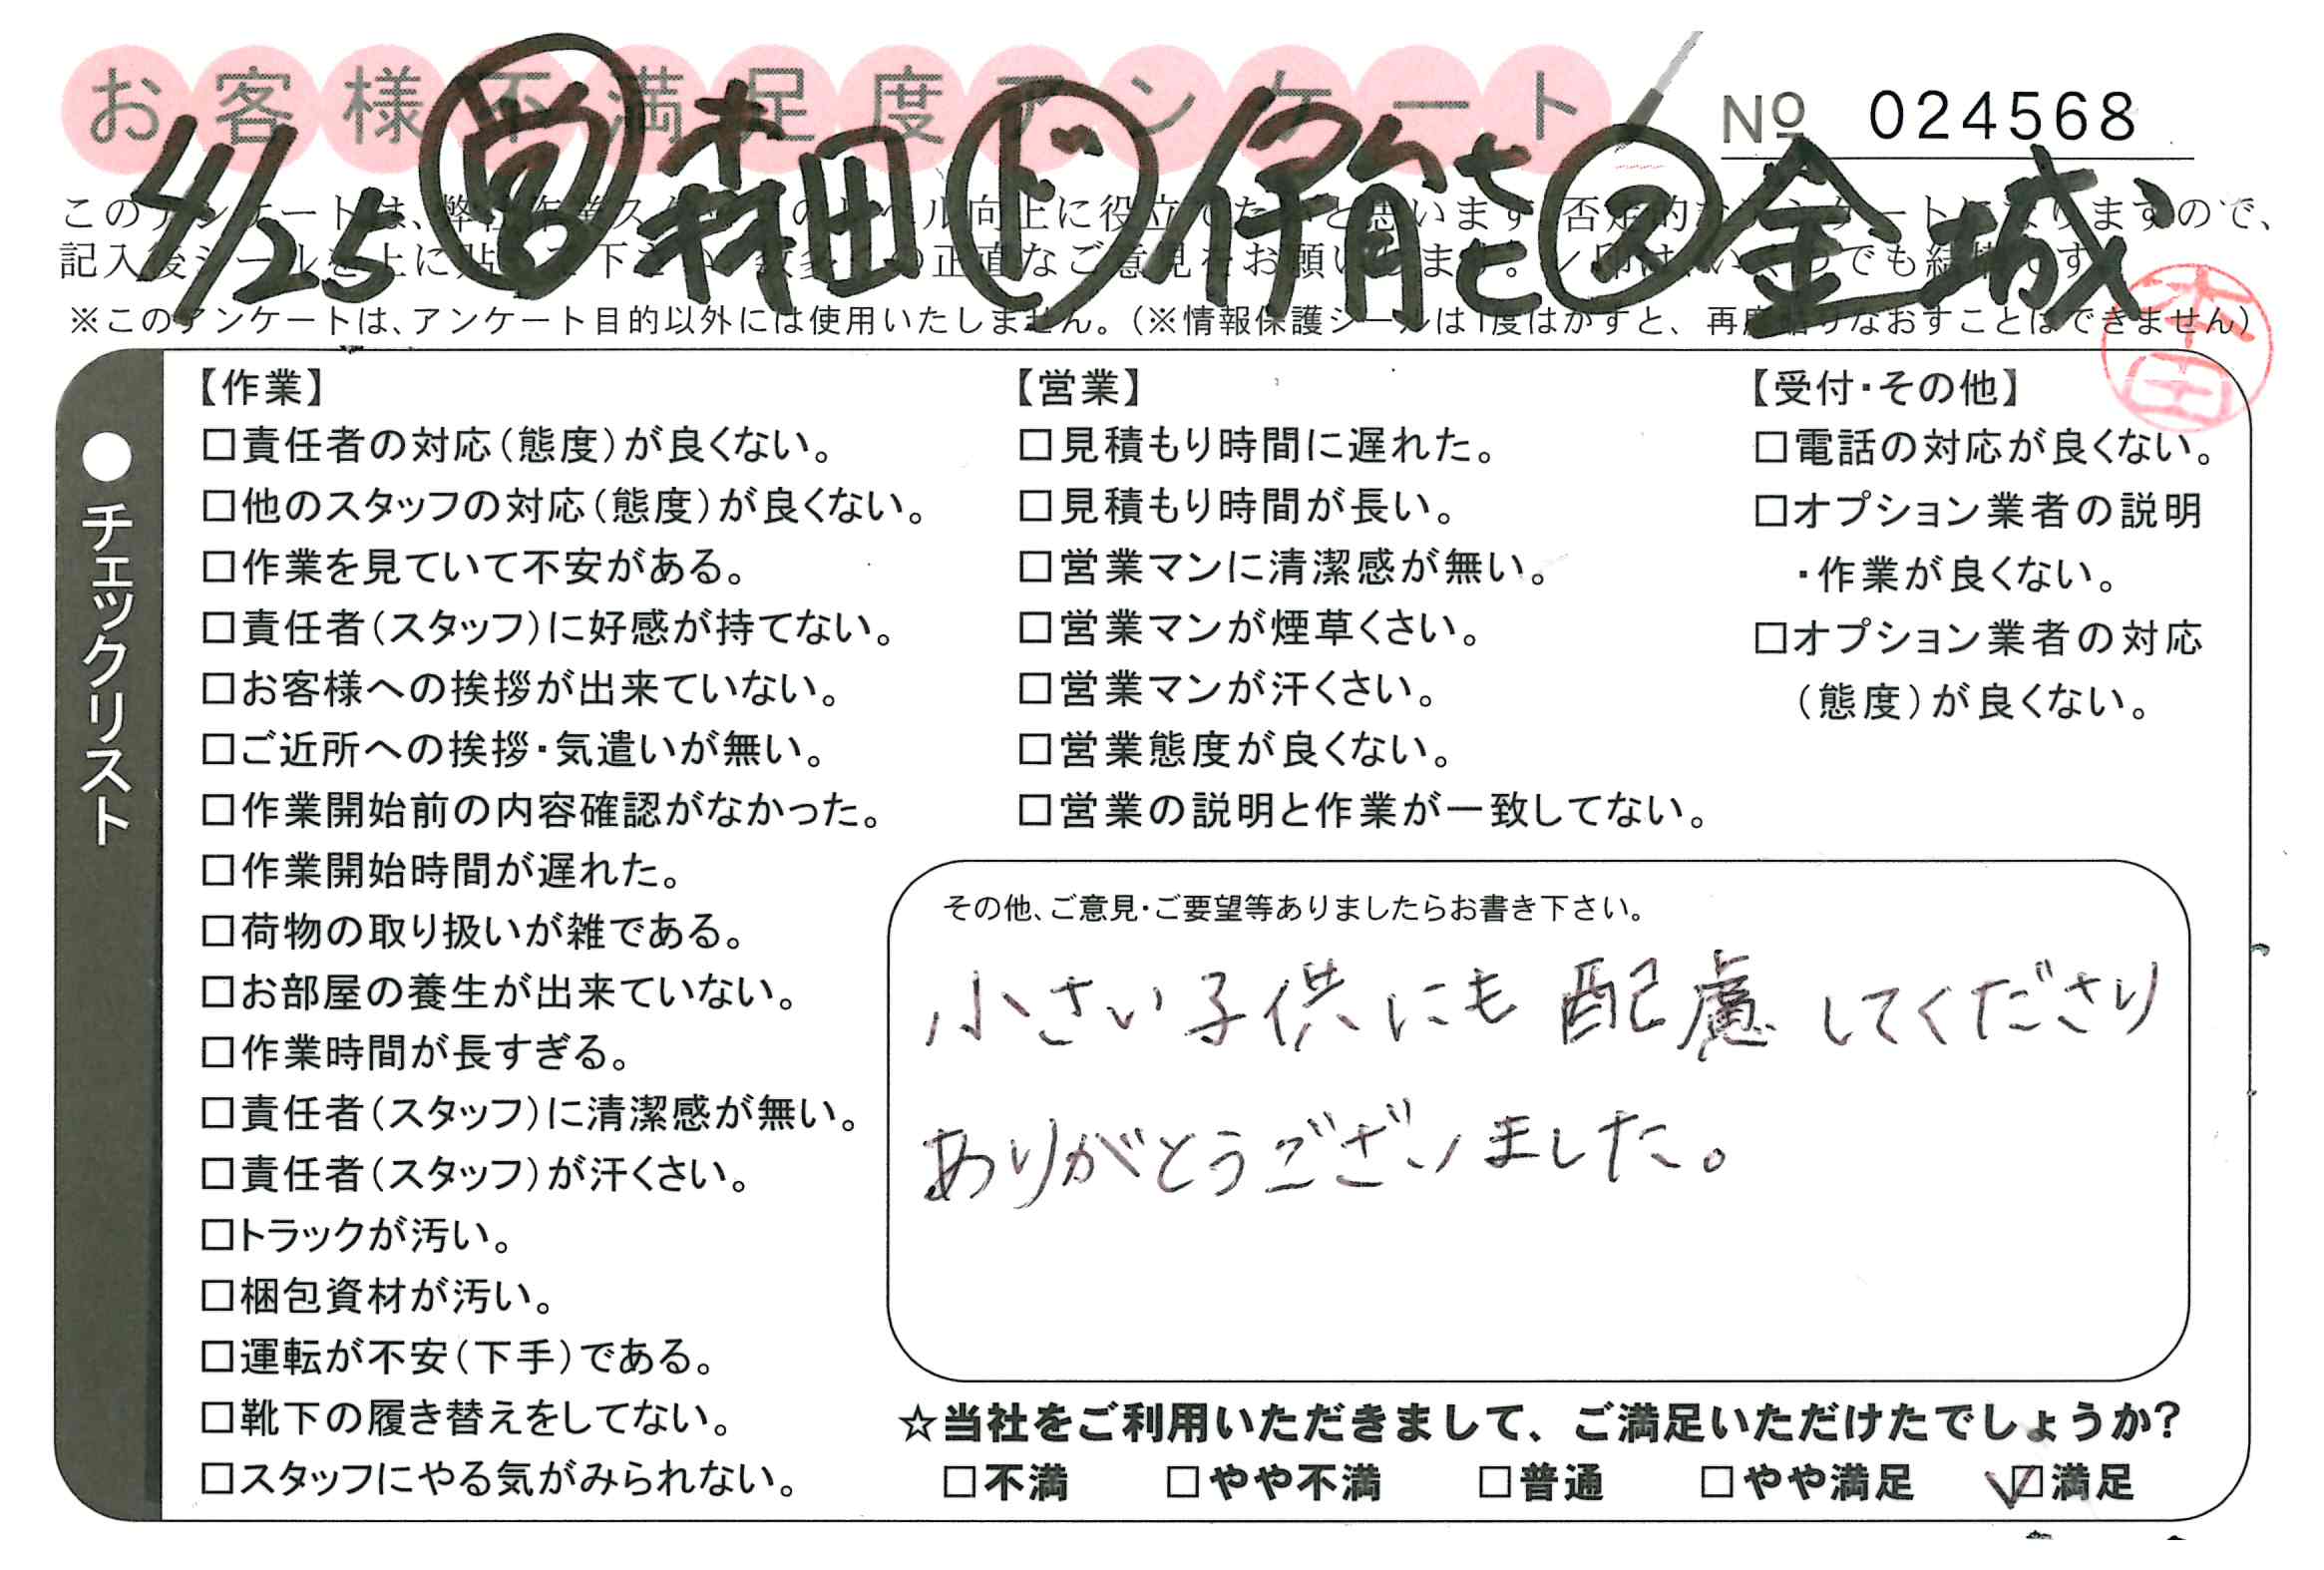 お客様不満足度アンケート
№ 024568
4/25 営 森田 ド 伊能 ス 金城
このアンケートは、弊社作業スタッフのレベル向上に役立てたいと思います。否定的なアンケートになりますので、
記入後シールを上に貼って下さい。数多くの正直なご意見をお願いします。レ印は、いくつでも結構です。
※このアンケートは、アンケート目的以外には使用いたしません。（※情報保護シールは1度はがすと、再度貼りなおすことはできません）
●チェックリスト
【作業】
□責任者の対応（態度）が良くない。
□他のスタッフの対応（態度）が良くない。
□作業を見ていて不安がある。
□責任者（スタッフ）に好感が持てない。
□お客様への挨拶が出来ていない。
□ご近所への挨拶・気遣いが無い。
□作業開始前の内容確認がなかった。
□作業開始時間が遅れた。
□荷物の取り扱いが雑である。
□お部屋の養生が出来ていない。
□作業時間が長すぎる。
□責任者（スタッフ）に清潔感が無い。
□責任者（スタッフ）が汗くさい。
□トラックが汚い。
□梱包資材が汚い。
□運転が不安（下手）である。
□靴下の履き替えをしてない。
□スタッフにやる気がみられない。
【営業】
□見積もり時間に遅れた。
□見積もり時間が長い。
□営業マンに清潔感が無い。
□営業マンが煙草くさい。
□営業マンが汗くさい。
□営業態度が良くない。
□営業の説明と作業が一致してない。
【受付・その他】
□電話の対応が良くない。
□オプション業者の説明
・作業が良くない。
□オプション業者の対応
（態度）が良くない。
その他、ご意見・ご要望等ありましたらお書き下さい。
小さい子供にも配慮してくださり
ありがとうございました。
☆当社をご利用いただきまして、ご満足いただけたでしょうか?
□不満 □やや不満 □普通 □やや満足 ☑満足